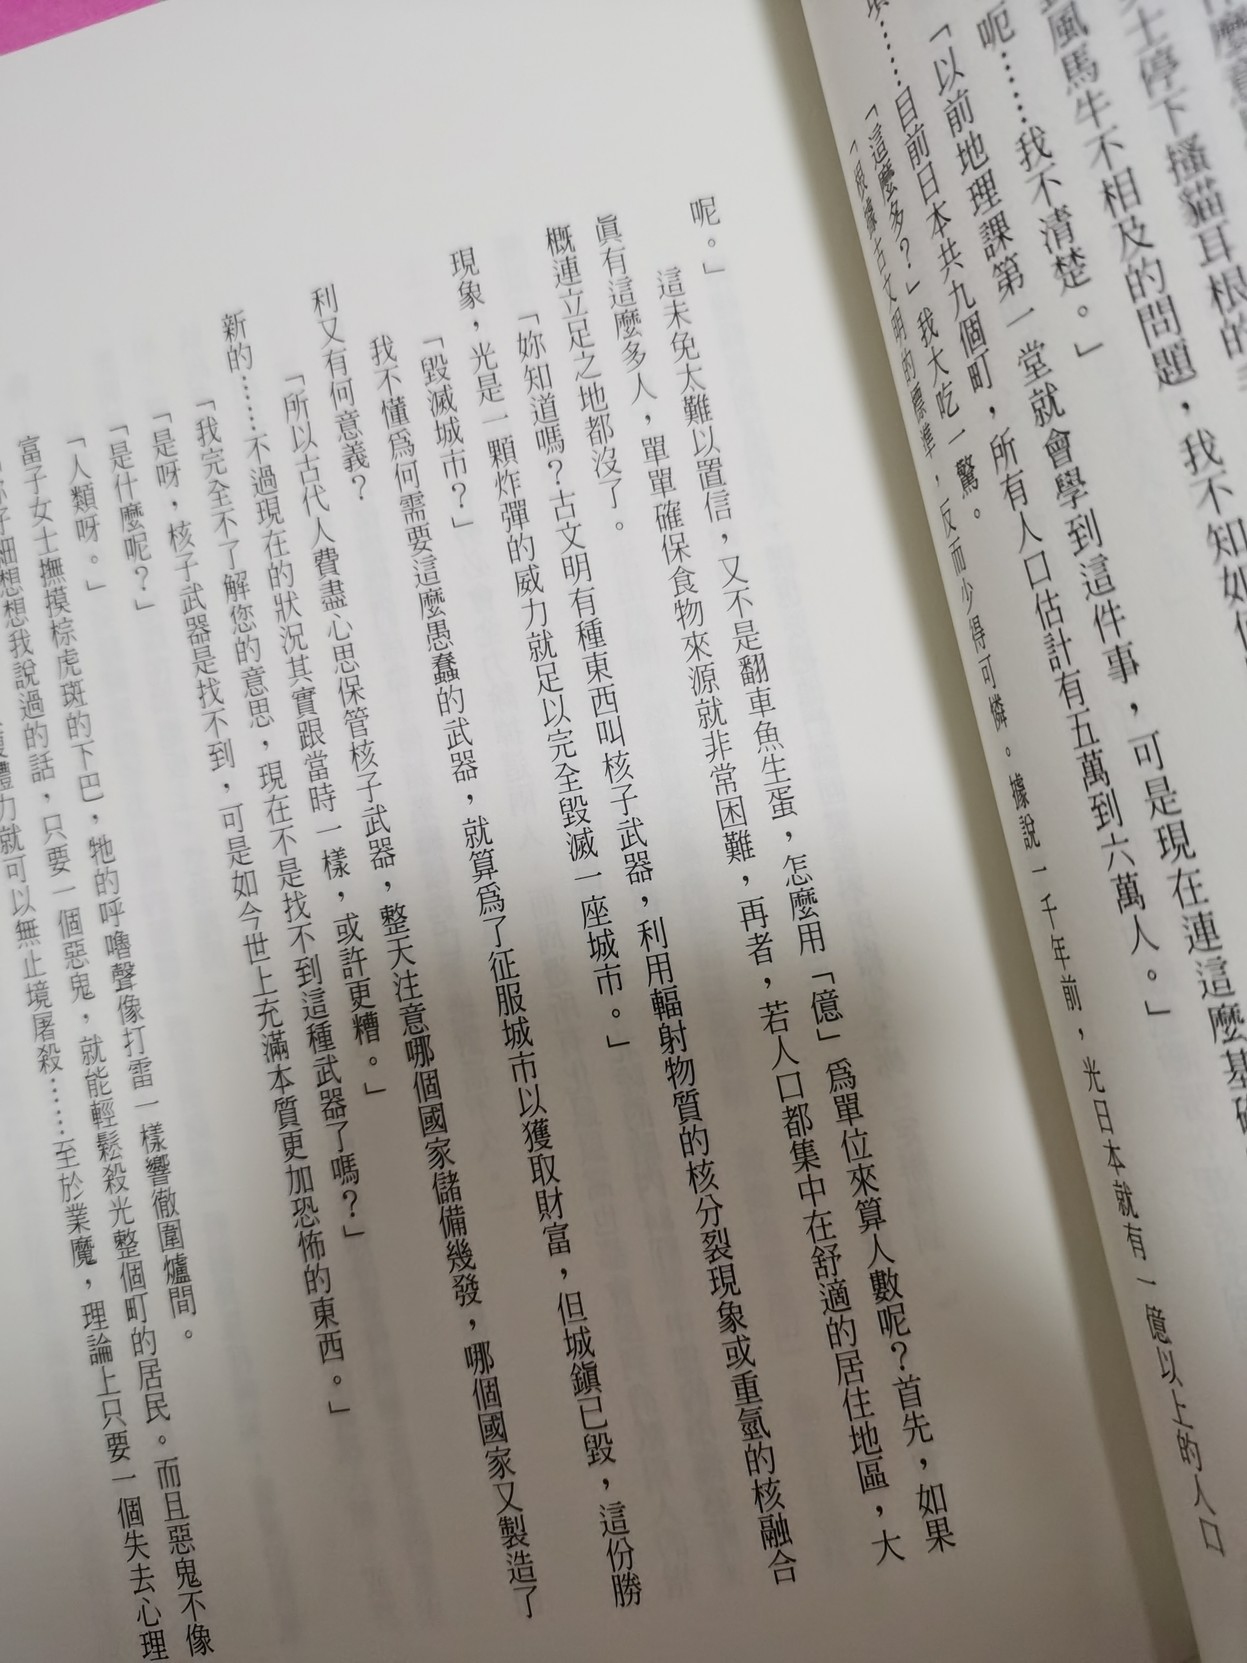 士停下搔貓耳根的
風馬牛不相及的問題，我不知如何
呃……我不清楚。」
「以前地理課第一堂就會學到這件事，可是現在連這麼基礎
……目前日本共九個町，所有人口估計有五萬到六萬人。」
「這麼多？」我大吃一驚。
「根據古文明的標準，反而少得可憐。據說一千年前，光日本就有一億以上的人口
呢。」
這未免太難以置信，又不是翻車魚生蛋，怎麼用「億」為單位來算人數呢？首先，如果
真有這麼多人，單單確保食物來源就非常困難，再者，若人口都集中在舒適的居住地區，大
概連立足之地都沒了。
「妳知道嗎？古文明有種東西叫核子武器，利用輻射物質的核分裂現象或重氫的核融合
現象，光是一顆炸彈的威力就足以完全毀滅一座城市。」
「毀滅城市？」
我不懂為何需要這麼愚蠢的武器，就算為了征服城市以獲取財富，但城鎮已毀，這份勝
利又有何意義？
「所以古代人費盡心思保管核子武器，整天注意哪個國家儲備幾發，哪個國家又製造了
新的……不過現在的狀況其實跟當時一樣，或許更糟。」
「我完全不了解您的意思，現在不是找不到這種武器了嗎？」
「是呀，核子武器是找不到，可是如今世上充滿本質更加恐怖的東西。」
「是什麼呢？」
「人類呀。」
富子女士撫摸棕虎斑的下巴，牠的呼嚕聲像打雷一樣響徹圍爐間。
仔細想想我說過的話，只要一個惡鬼，就能輕鬆殺光整個町的居民。而且惡鬼不像
體力就可以無止境屠殺……至於業魔，理論上只要一個失去心理